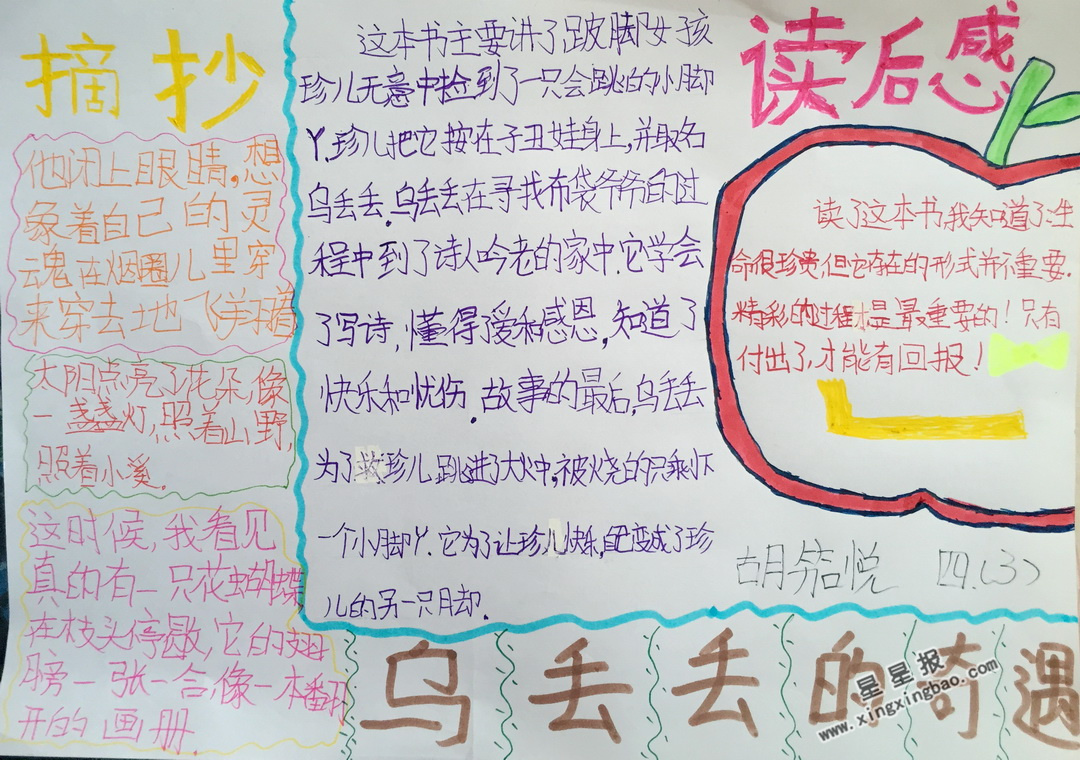 摘抄
他闭上眼睛,想
象着自己的灵
魂在烟圈儿里穿
来穿去地飞翔着
太阳点亮了花朵,像
一盏盏灯,照着山野,
照着小溪.
这时候,我看见
真的有一只花蝴蝶
在枝头停歇,它的翅
膀一张一合,像一本翻
开的画册.
这本书主要讲了跛脚女孩
珍儿无意中捡到了一只会跳的小脚
丫.珍儿把它按在子丑娃身上,并取名
乌丢丢.乌丢丢在寻找布袋爷爷的过
程中到了诗人吟老的家中.它学会
了写诗,懂得了爱和感恩,知道了
快乐和忧伤.故事的最后,乌丢丢
为了救珍儿跳进了大火中,被烧的只剩下
一个小脚丫.它为了让珍儿快乐,自己变成了珍
儿的另一只脚.
读后感
读了这本书,我知道了生
命很珍贵,但它存在的形式并不重要.
精彩的过程才是最重要的!只有
付出了,才能有回报!
胡 悦 四.(3)
乌丢丢的奇遇
星星报
www.xingxingbao.com